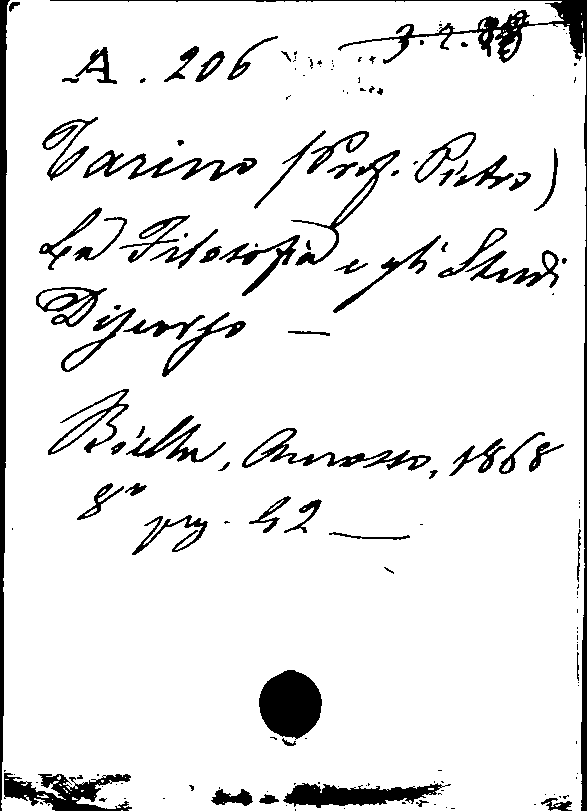 A. 206
Tarino (Prof. Pietro)
La Filosofia e gli Studi
Discorso —
Biella, Amosso, 1868
8° pag. 42 —